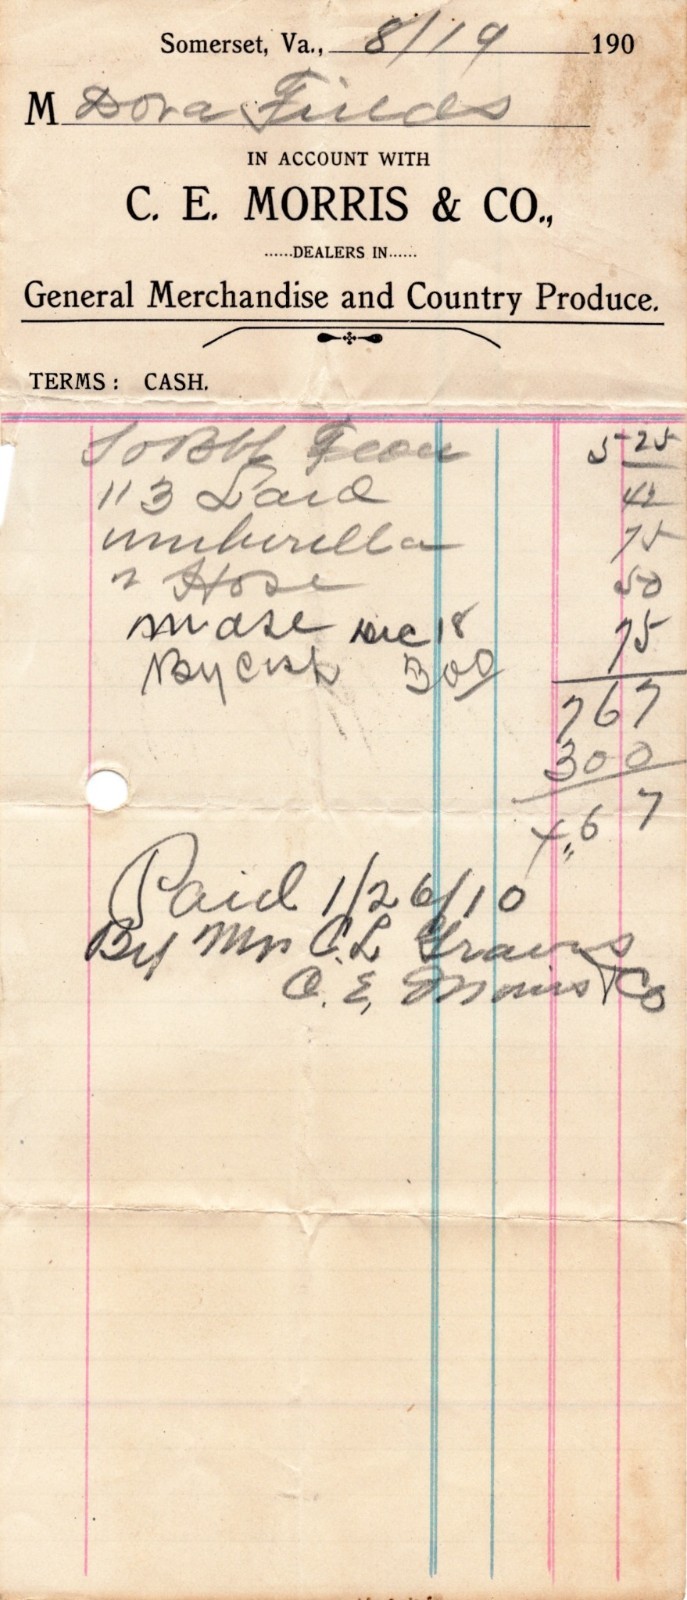 Somerset, Va., 8/19 190
M Dora Fields
IN ACCOUNT WITH
C. E. MORRIS & CO.,
......DEALERS IN......
General Merchandise and Country Produce.
TERMS: CASH.
To Bbl 5 25
Lard 42
umberella 75
Hose 50
mdse Dec 18 75
By cash 300
767
300
4,67
Paid 1/26/10
By Mrs C. L
C. E, Morris & Co